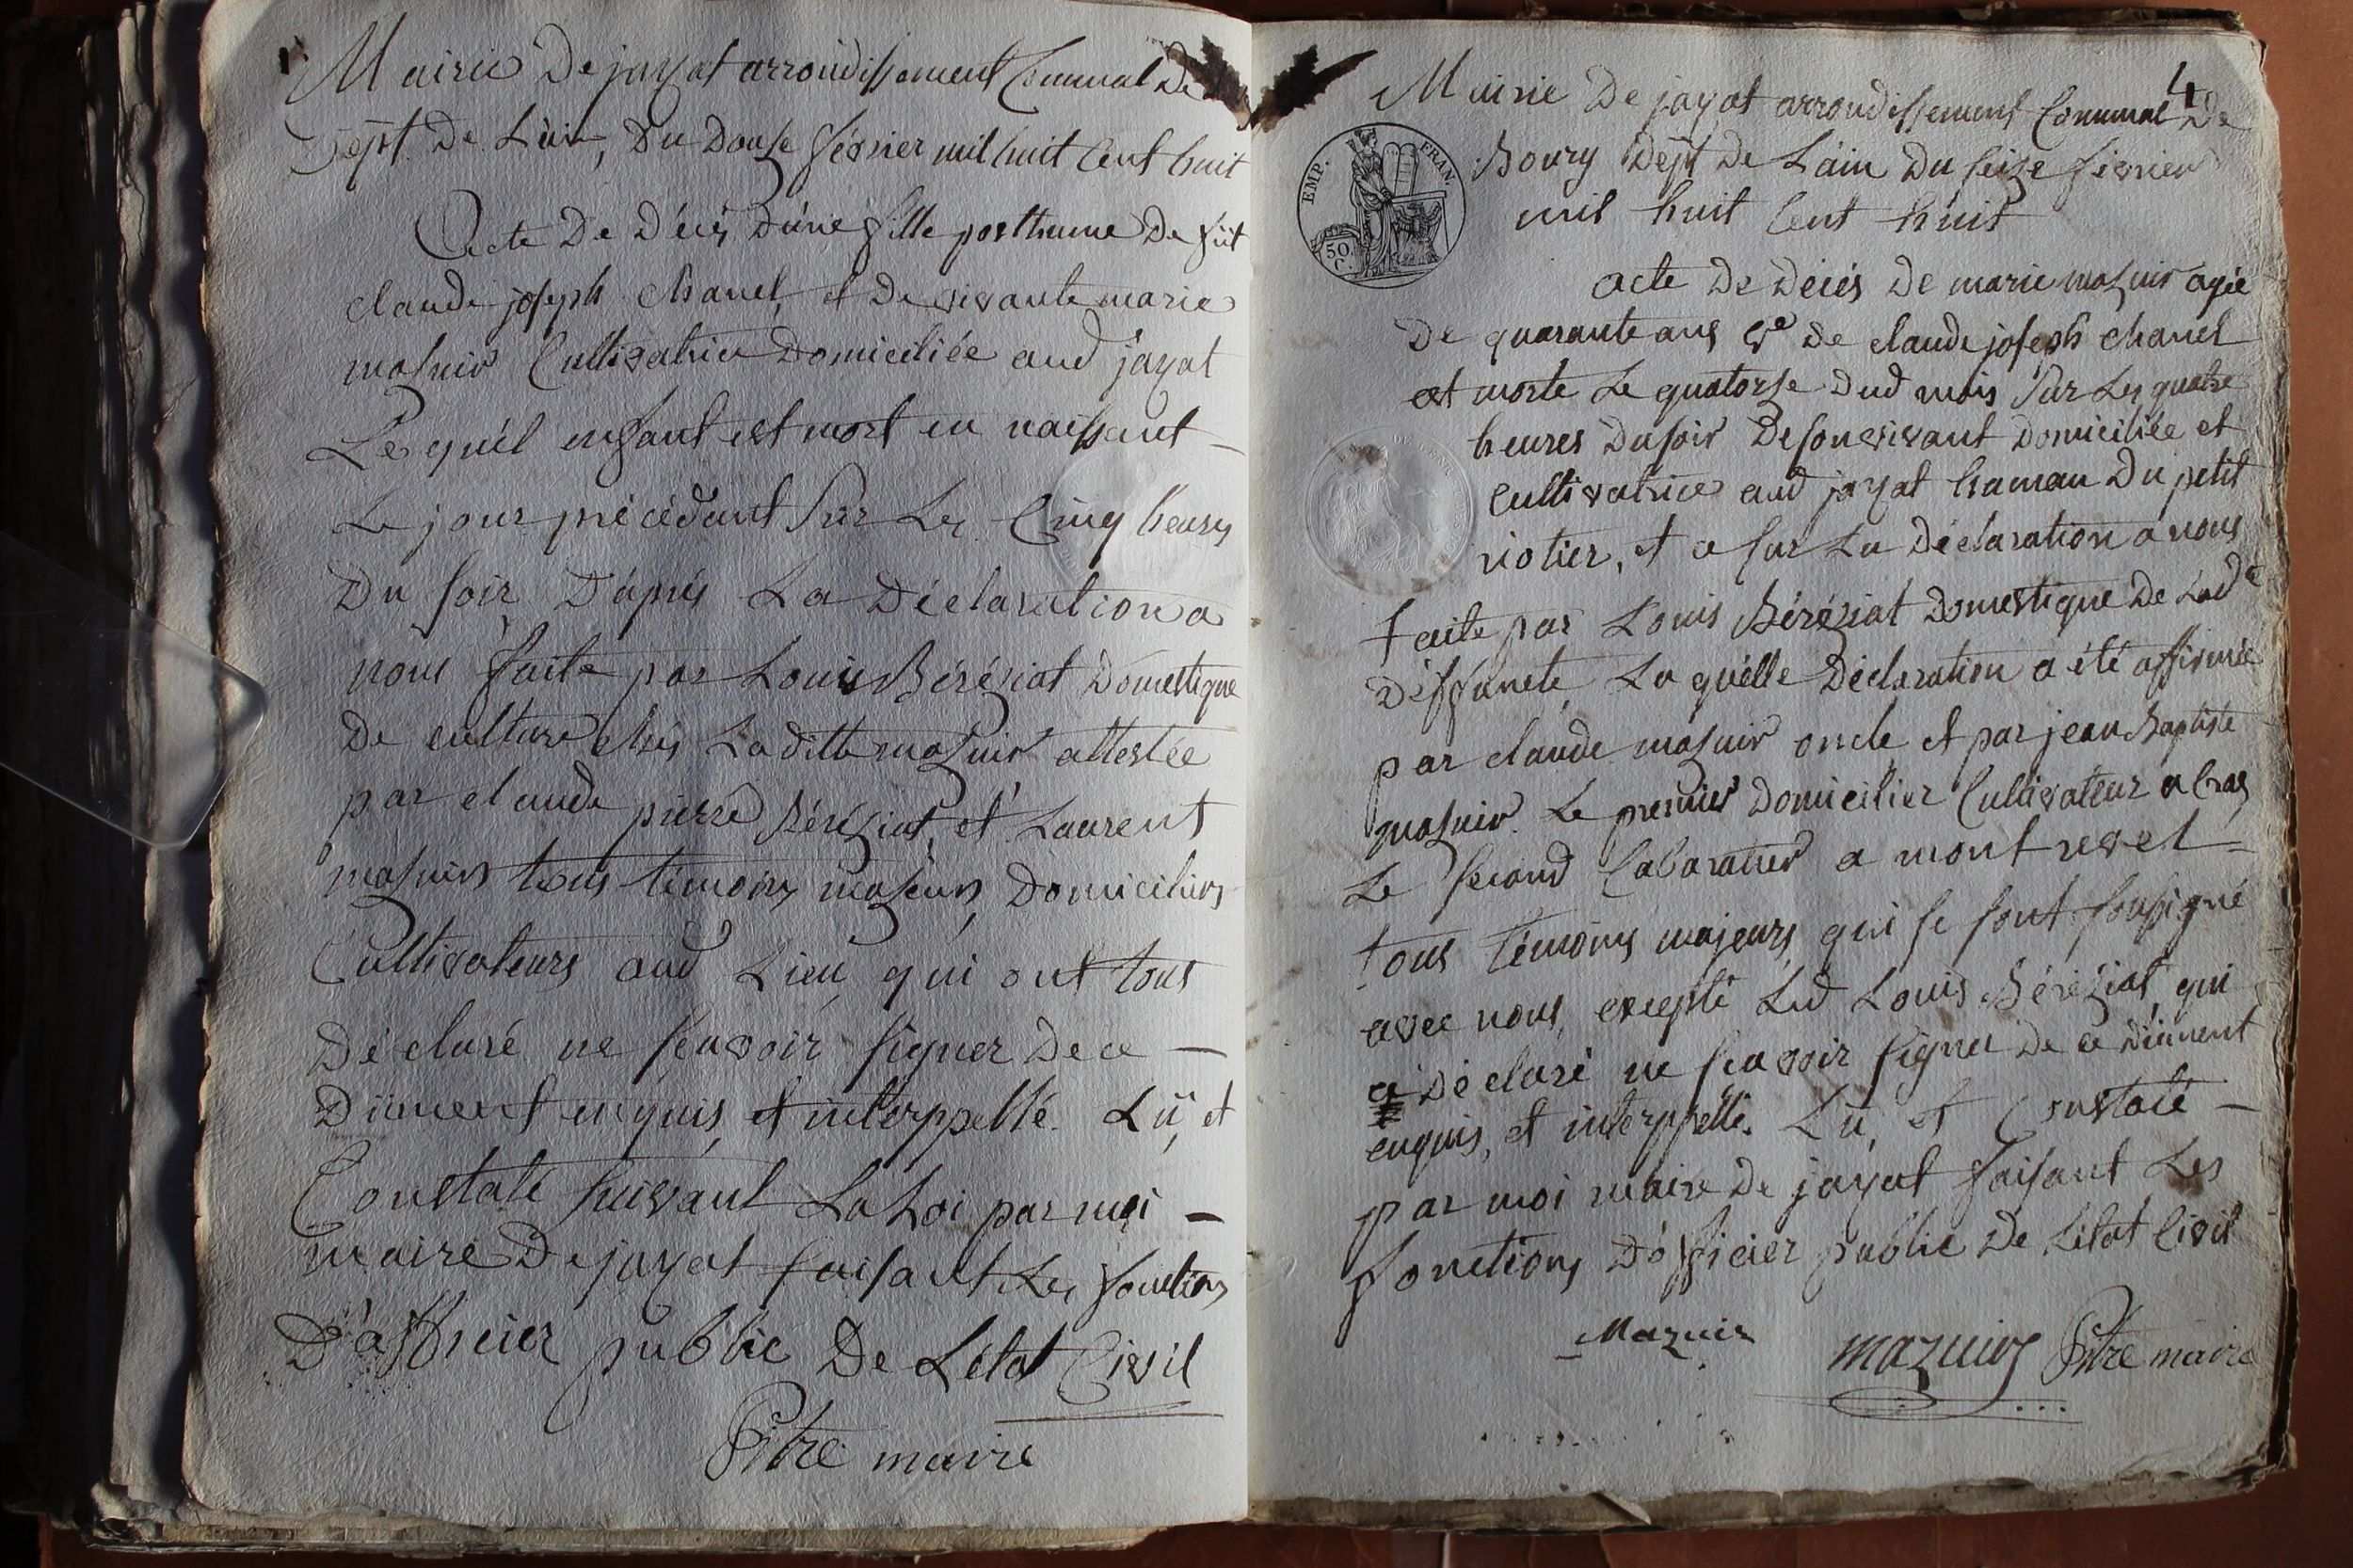 Mairie De jayat arrondissement Communal De
Dept. De L'äin, Du Douze février mil huit Cent huit
Acte De Décés D'une fille posthume De füt
claude joseph Chanel, et De vivante marie
mazuir Cultivatrice Domiciliée aud jayat
Le quel enfant est mort en naissant -
Le jour précédant Sur Les Cinq heures
Du soir D'après La Déclaration a
nous faite par Louis Béréziat Domestique
De culture chés La ditte mazuir attestée
par claude pierre Béréziat, et Laurent
mazuir tous témoins majeurs Domiciliers
Cultivateurs aud Lieu qui ont tous
Déclaré ne scavoir signer De ce -
Düment enquis, et interppellé. Lü, et
Constaté suivant La Loi par moi -
maire De jayat faisant Les fonctions
D'officier public De L'état Civil
Pitre maire
4
Mairie De jayat arrondissement Communal De
Bourg Dept De L'äin Du seize février
mil huit Cent huit
EMP. FRAN.
50 C.
acte De Décés De marie mazuir agée
De quarante ans Ve De claude joseph chanel
est morte Le quatorze Dud mois Sur Les quatre
heures Du soir De son vivant Domiciliée et
Cultivatrice aud jayat hameau Du petit
riotier, et ce sur La Déclaration a nous
faite par Louis Béréziat Domestique De Lade
Déffuncte, La quelle Déclaration a été affirmée
par claude mazuir oncle et par jean Baptiste
mazuir. Le premier Domicilier Cultivateur a Cras,
Le second Cabaratier a montrevel =
tous témoins majeurs, qui se sont soussigné
avec nous, excepté Lud Louis Béréziat, qui
a Déclaré ne scavoir signer De ce Düment
enquis, et interppellé. Lü, et Constaté -
par moi maire De jayat faisant Les
fonctions D'officier public De L'état Civil
Mazuir mazuir Pitre maire